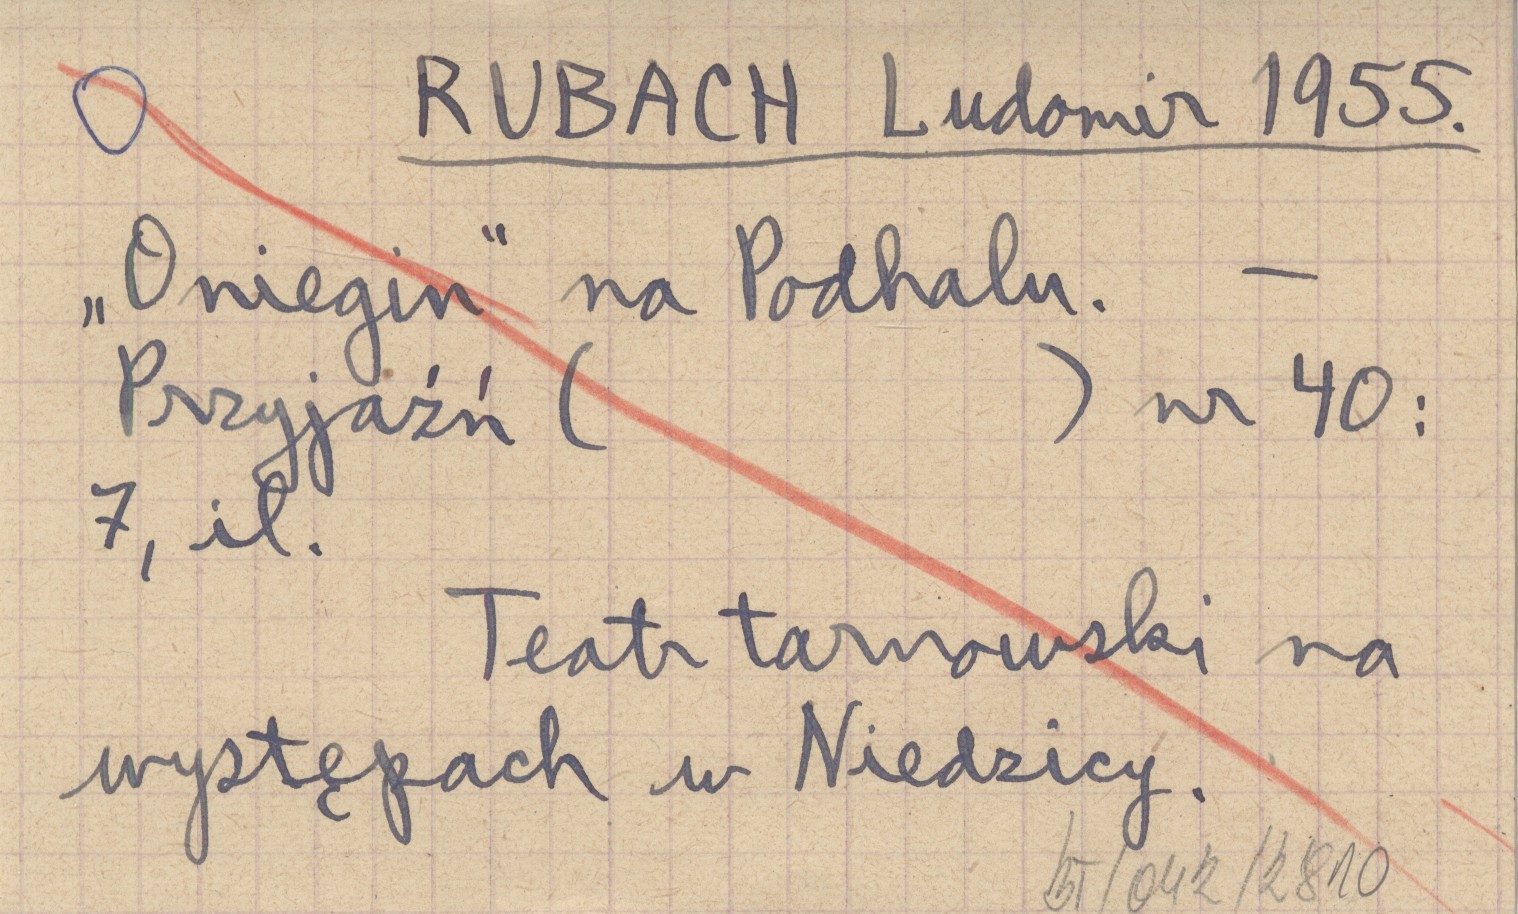 RUBACH Ludomir 1955.
„Oniegin“ na Podhalu. —
Przyjaźń ( ) nr 40:
7, il.
Teatr tarnowski na
występach w Niedzicy.
/042/2810